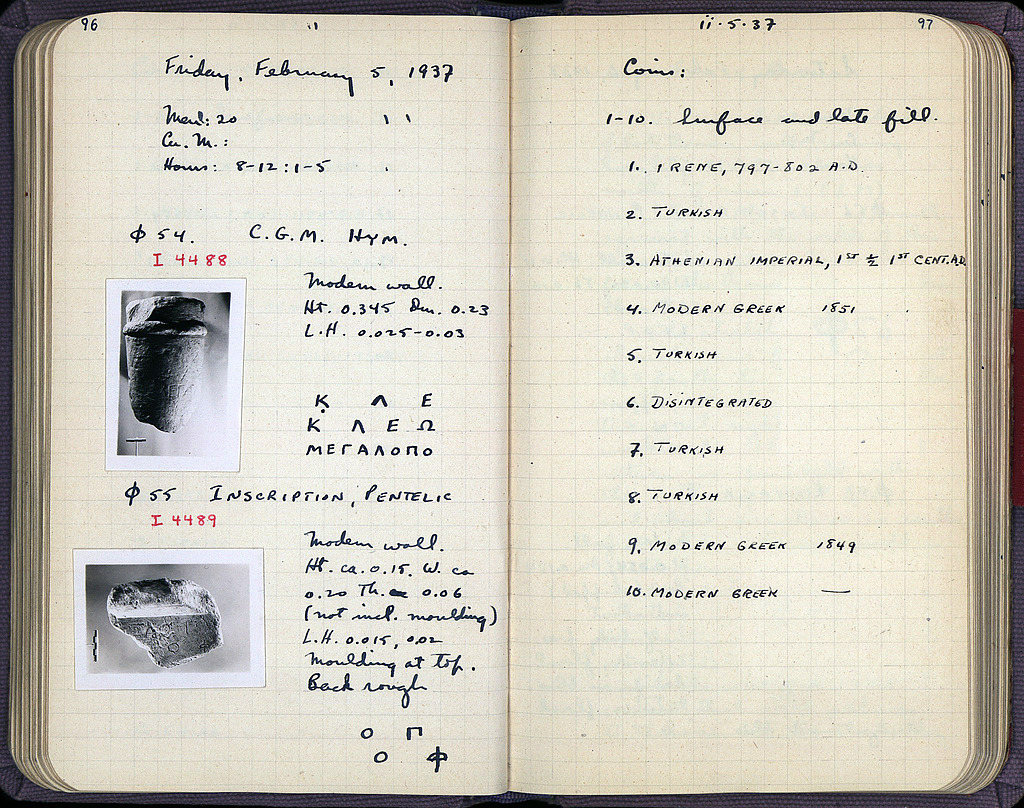 96
Friday, February 5, 1937
Men: 20
Cu. M.:
Hours: 8-12 : 1-5
Φ 54. C.G.M. Hym.
I 4488
Modern wall.
Ht. 0.345 Dm. 0.23
L.H. 0.025-0.03
Ḳ Λ Ε
Κ Λ Ε Ω
ΜΕΓΑΛΟΠΟ
Φ 55 INSCRIPTION, PENTELIC
I 4489
Modern wall.
Ht. ca. 0.15. W. ca
0.20 Th. 0.06
(not incl. moulding)
L.H. 0.015, 0.02
Moulding at top.
Back rough
Ο Π
Ο Φ
ii·5·37 97
Coins:
1-10. Surface and late fill.
1. IRENE, 797-802 A.D.
2. TURKISH
3. ATHENIAN IMPERIAL, 1ST ½ 1ST CENT. A.D.
4. MODERN GREEK 1851
5. TURKISH
6. DISINTEGRATED
7. TURKISH
8. TURKISH
9. MODERN GREEK 1849
10. MODERN GREEK —